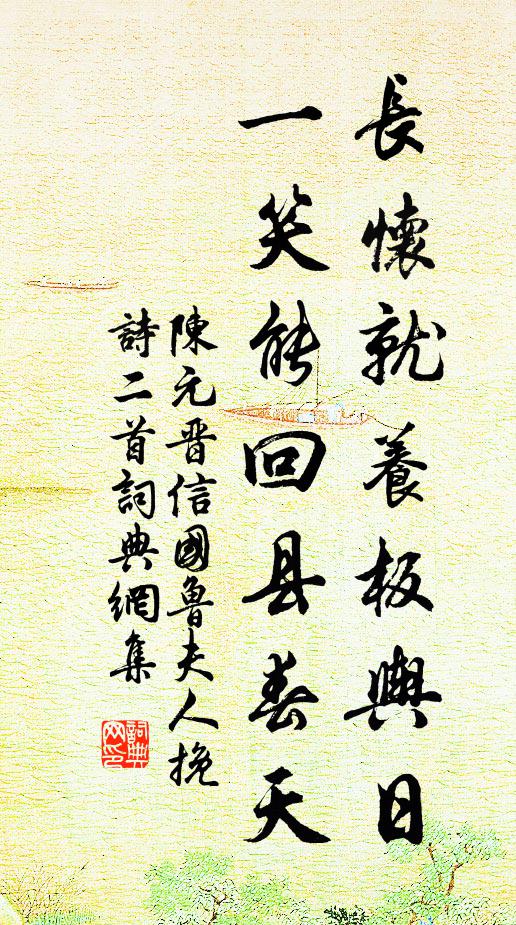 長懷就養板輿日
一笑能回县春天
陳元晋信國魯夫人挽
詩二首詞典網集
詞典
网印